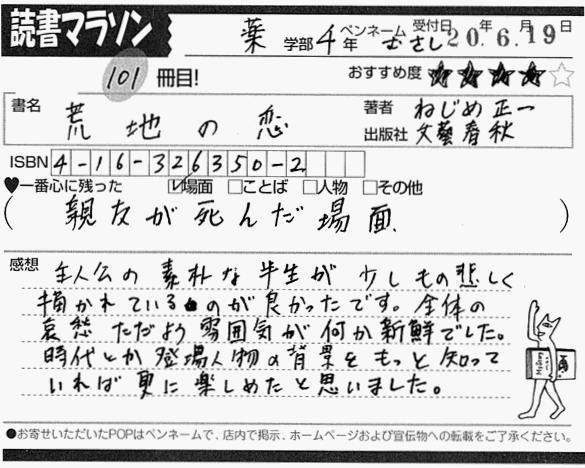 読書マラソン
薬 学部 4 年 ペンネーム むさし 受付日 20年 6月 19日
101 冊目! おすすめ度 ★★★★☆
書名 荒地の恋 著者 ねじめ正一
出版社 文藝春秋
ISBN 4-16-326350-2
♥一番心に残った ☑場面 □ことば □人物 □その他
( 親友が死んだ場面、 )
感想 主人公の素朴な半生が少しもの悲しく
描かれているのが良かったです。全体の
哀愁ただよう雰囲気が何か新鮮でした。
時代とか登場人物の背景をもっと知って
いれば更に楽しめたと思いました。
●お寄せいただいたPOPはペンネームで、店内で掲示、ホームページおよび宣伝物への転載をご了承ください。